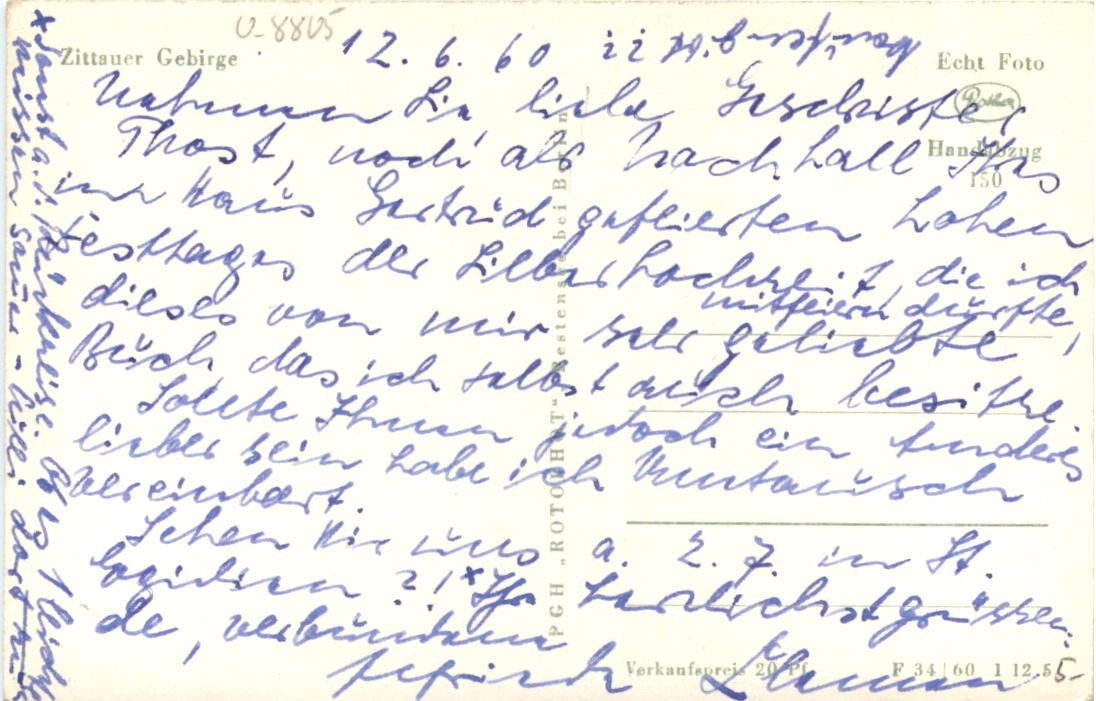 U-8805
Zittauer Gebirge
12. 6. 60
Echt Foto
Handabzug
150
Nehmen Sie, liebe Geschwister
Thost, noch als Nachhall Ihres
im Haus Gertrud gefeierten hohen
Festtages der Silberhochzeit, die ich
mitfeiern durfte,
dieses von mir sehr geliebte
Buch, das ich selbst auch besitze.
Sollte Ihnen jedoch ein anderes
lieber sein habe ich Umtausch
vereinbart.
Sehen wir uns a. 2. 7. in St.
Egidien ? ! * Ihre herzlichst grüssen-
de, verbundene
Elfriede
PGH „ROTOPHOT“ Bestensee bei Berlin
Verkaufspreis 20 Pf.
F 34/60 1 12.55
* Sonst a.
müssen